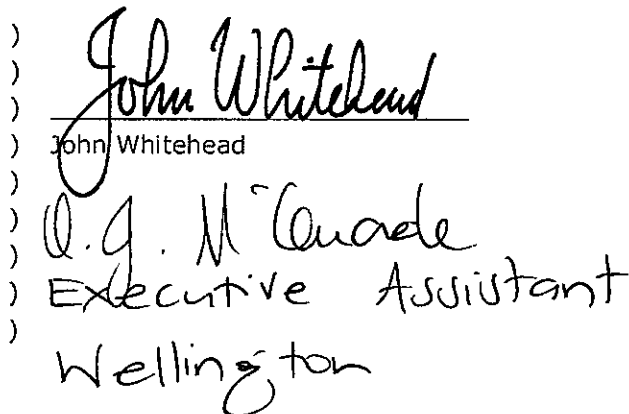 )
)
) John Whitehead
)
) John Whitehead
)
) Q.J. McQuade
)
) Executive Assistant
)
Wellington